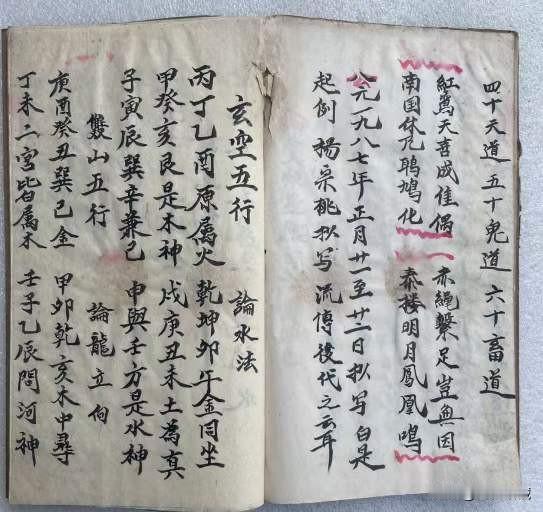 四十天道 五十鬼道 六十畜道
紅鸞天喜成佳偶 赤繩繫足豈無因
南国休凭鵰鳩化 秦楼明月鳳凰鳴
公元一九八七年正月廿一至廿二日抄写白是
起例 楊采桃抄写 流傳後代之云耳
玄空五行 論水法
丙丁乙酉原属火 乾坤卯午金同坐
甲癸亥艮是木神 戌庚丑未土為真
子寅辰巽辛兼巳 申與壬方是水神
雙山五行 論龍立向
庚酉癸丑巽巳金 甲卯乾亥木中尋
丁未二宮皆属木 壬子乙辰問河神